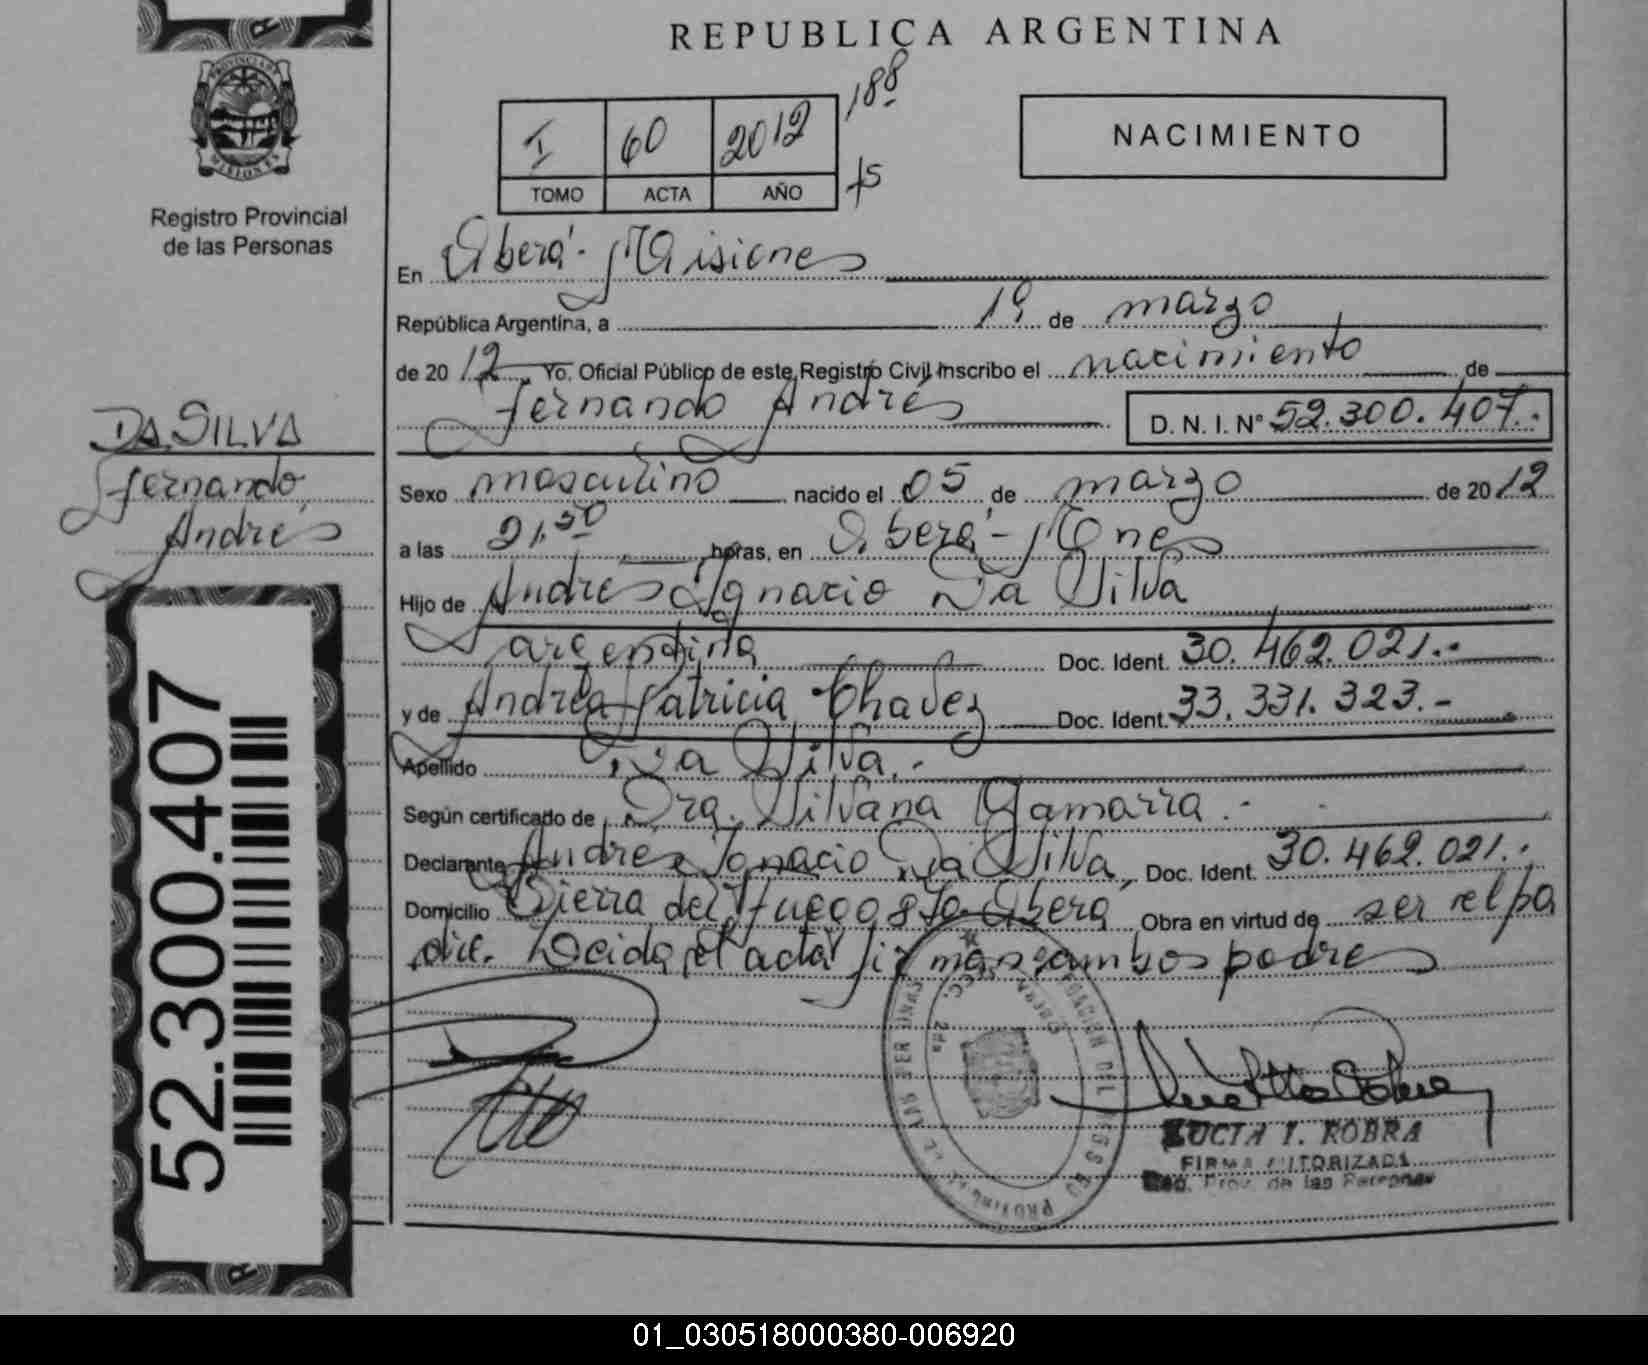 REPUBLICA ARGENTINA
PROVINCIA DE
MISIONES
Registro Provincial
de las Personas
I 60 2012 188
TOMO ACTA AÑO
NACIMIENTO
En Oberá - Misiones
República Argentina, a 19 de marzo
de 2012 Yo, Oficial Público de este Registro Civil Inscribo el nacimiento de
Fernando Andrés D. N. I. N° 52.300.407.-
DA SILVA
Fernando
Andrés
Sexo masculino nacido el 05 de marzo de 2012
a las 21,50 horas, en Oberá - Mnes
Hijo de Andrés Ignacio Da Silva
argentina Doc. Ident. 30.462.021.-
y de Andrea Patricia Chavez Doc. Ident. 33.331.323.-
Apellido Da Silva.-
Según certificado de Dra. Silvana Gamarra.-
Declarante Andrés Ignacio Da Silva, Doc. Ident. 30.462.021.-
Domicilio Tierra del Fuego Oberá Obra en virtud de ser el pa
dre. Leida el acta firman ambos padres
52.300.407
LUCIA I. ROBRA
FIRMA AUTORIZADA
Reg. Prov. de las Personas
01_030518000380-006920